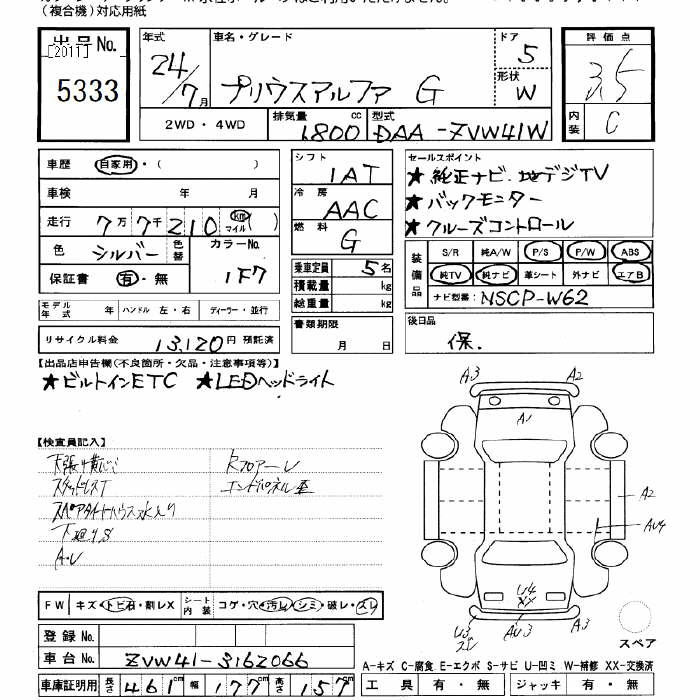 (複合機)対応用紙
出品No.
[2011]
5333
年式 車名・グレード ドア 評価点
24/7月 プリウスアルファ G 5 3.5
形状 W
2WD・4WD 排気量 1800 cc 型式 DAA-ZVW41W 内装 C
車歴 自家用・( )
シフト 1AT
セールスポイント
★純正ナビ.地デジTV
★バックモニター
★クルーズコントロール
車検 年 月
冷房 AAC
走行 7万7千210 km マイル( )
燃料 G
色 シルバー 色替 カラーNo. 1F7
保証書 有・無
乗車定員 5名
積載量 kg
総重量 kg
装備品 S/R 純A/W P/S P/W ABS
純TV 純ナビ 革シート 外ナビ エアB
ナビ型番: NSCP-W62
モデル年式 年 ハンドル 左・右 ディーラー・並行
書類期限 月 日
後日品
保.
リサイクル料金 13,120 円 預託済
【出品店申告欄(不良箇所・欠品・注意事項等)】
★ビルトインETC ★LEDヘッドライト
A3 A2
A1
【検査員記入】
下廻りS
A・U
エンドパネル歪
A2
AU4
U4
XX
U3 AU3 A3
FW キズ・トビ石・割レX シート内装 コゲ・穴・汚レ・シミ・破レ・スレ
スペア
登録No.
車台No. ZVW41-3162066
A-キズ C-腐食 E-エクボ S-サビ U-凹ミ W-補修 XX-交換済
車庫証明用 長さ 461cm 幅 177cm 高さ 157cm
工具 有・無 ジャッキ 有・無